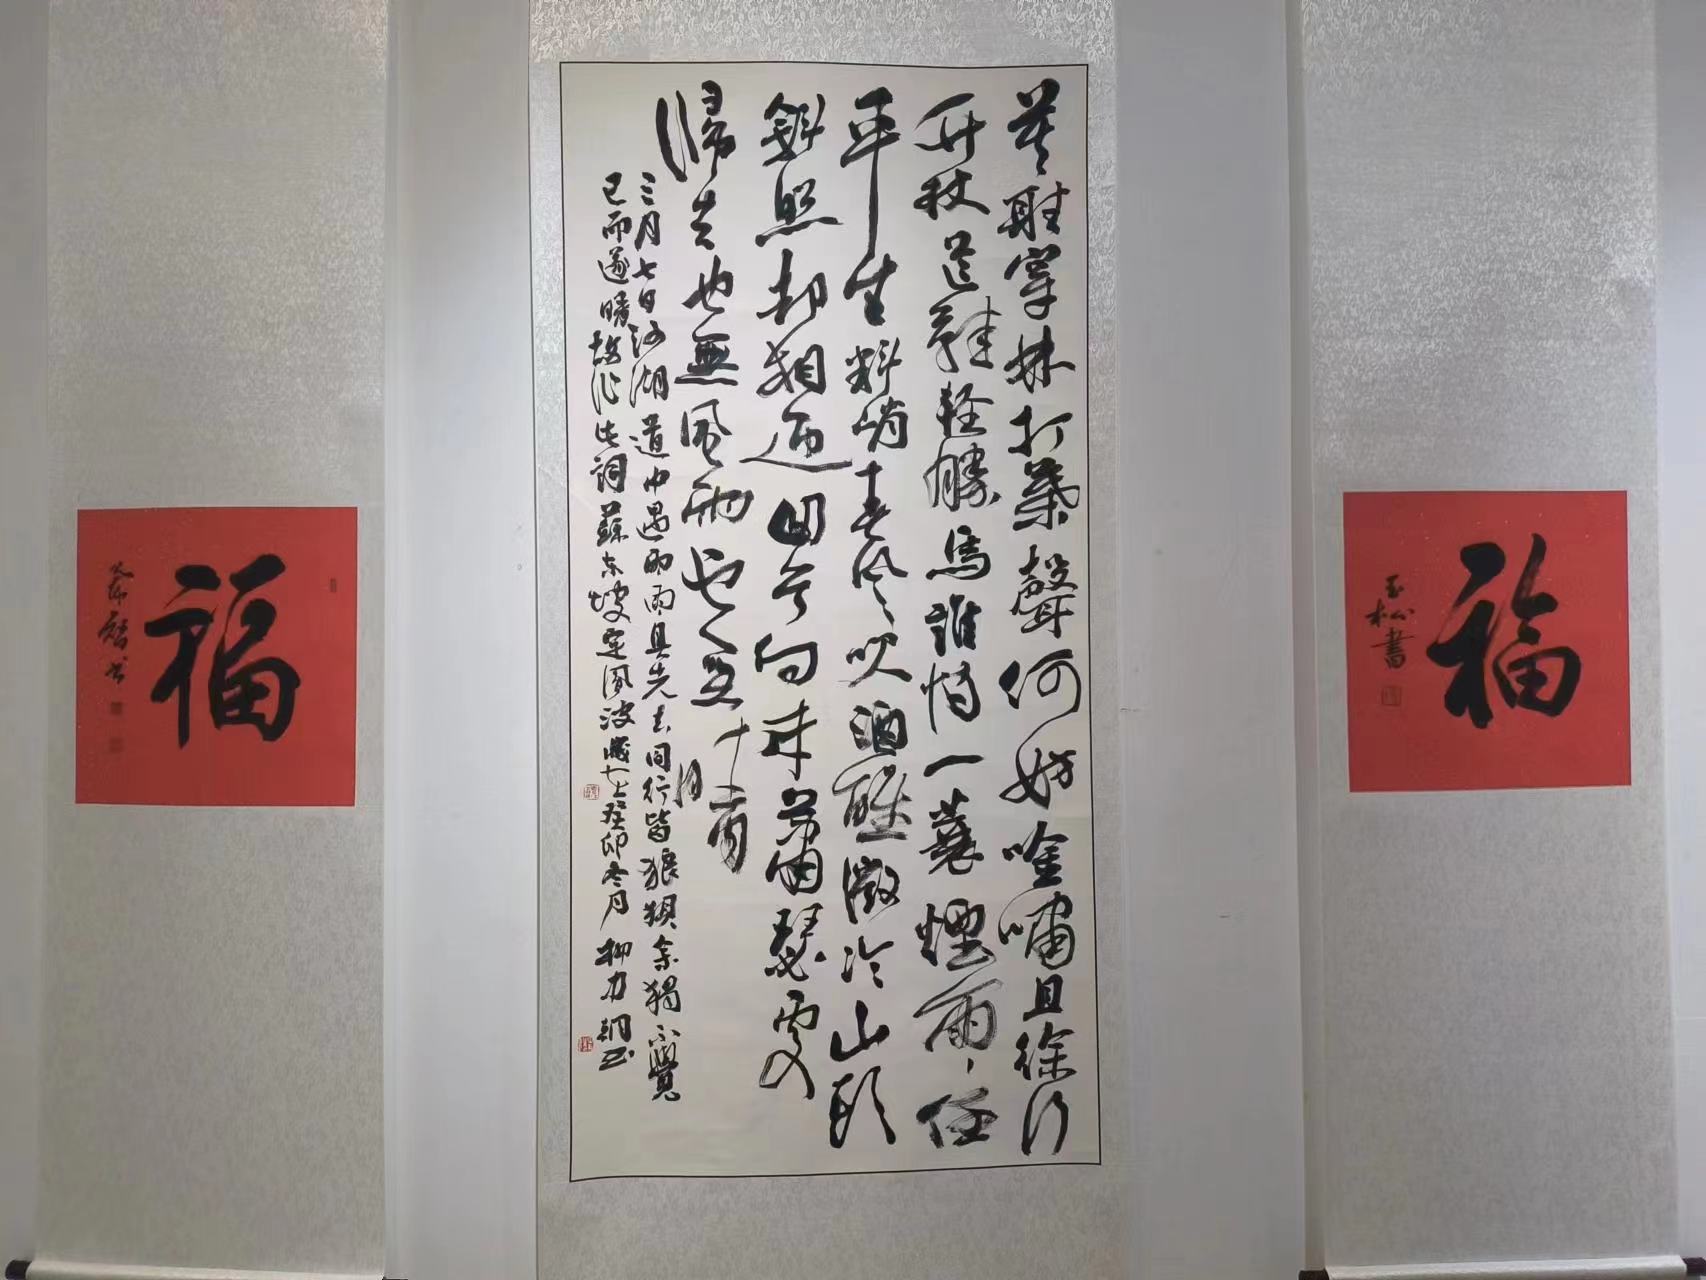 福
玉松書
莫聽穿林打葉聲何妨唫嘯且徐行
竹杖芒鞋輕勝馬誰怕一蓑煙雨、任
平生料峭春风吹酒醒微冷山頭
斜照却相迎回首向来蕭瑟處
歸去也無風雨也無
三月七日沙湖道中遇雨雨具先去同行皆狼狽余獨不覺
已而遂晴故作此詞蘇东坡定風波歲在癸卯冬月柳力鋼书
福